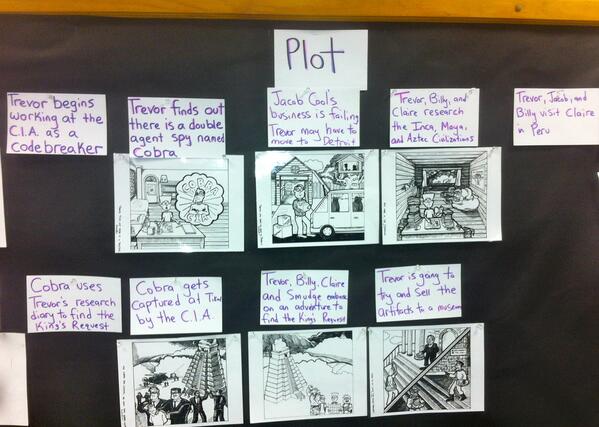 Plot
Trevor begins
working at the
C.I.A. as a
codebreaker
Trevor finds out
there is a double
agent spy named
Cobra
Jacob Cool's
business is failing
Trevor may have to
move to Detroit
Trevor, Billy, and
Claire research
the Inca, Maya,
and Aztec Civilizations
Trevor, Jacob, and
Billy visit Claire
in Peru
COBRA
Cobra uses
Trevor's research
diary to find the
King's Request
Cobra gets
captured at
by the C.I.A.
Trevor, Billy, Claire
and Smudge embark
on an adventure to
find the King's Request
Trevor is going to
try and sell the
artifacts to a museum